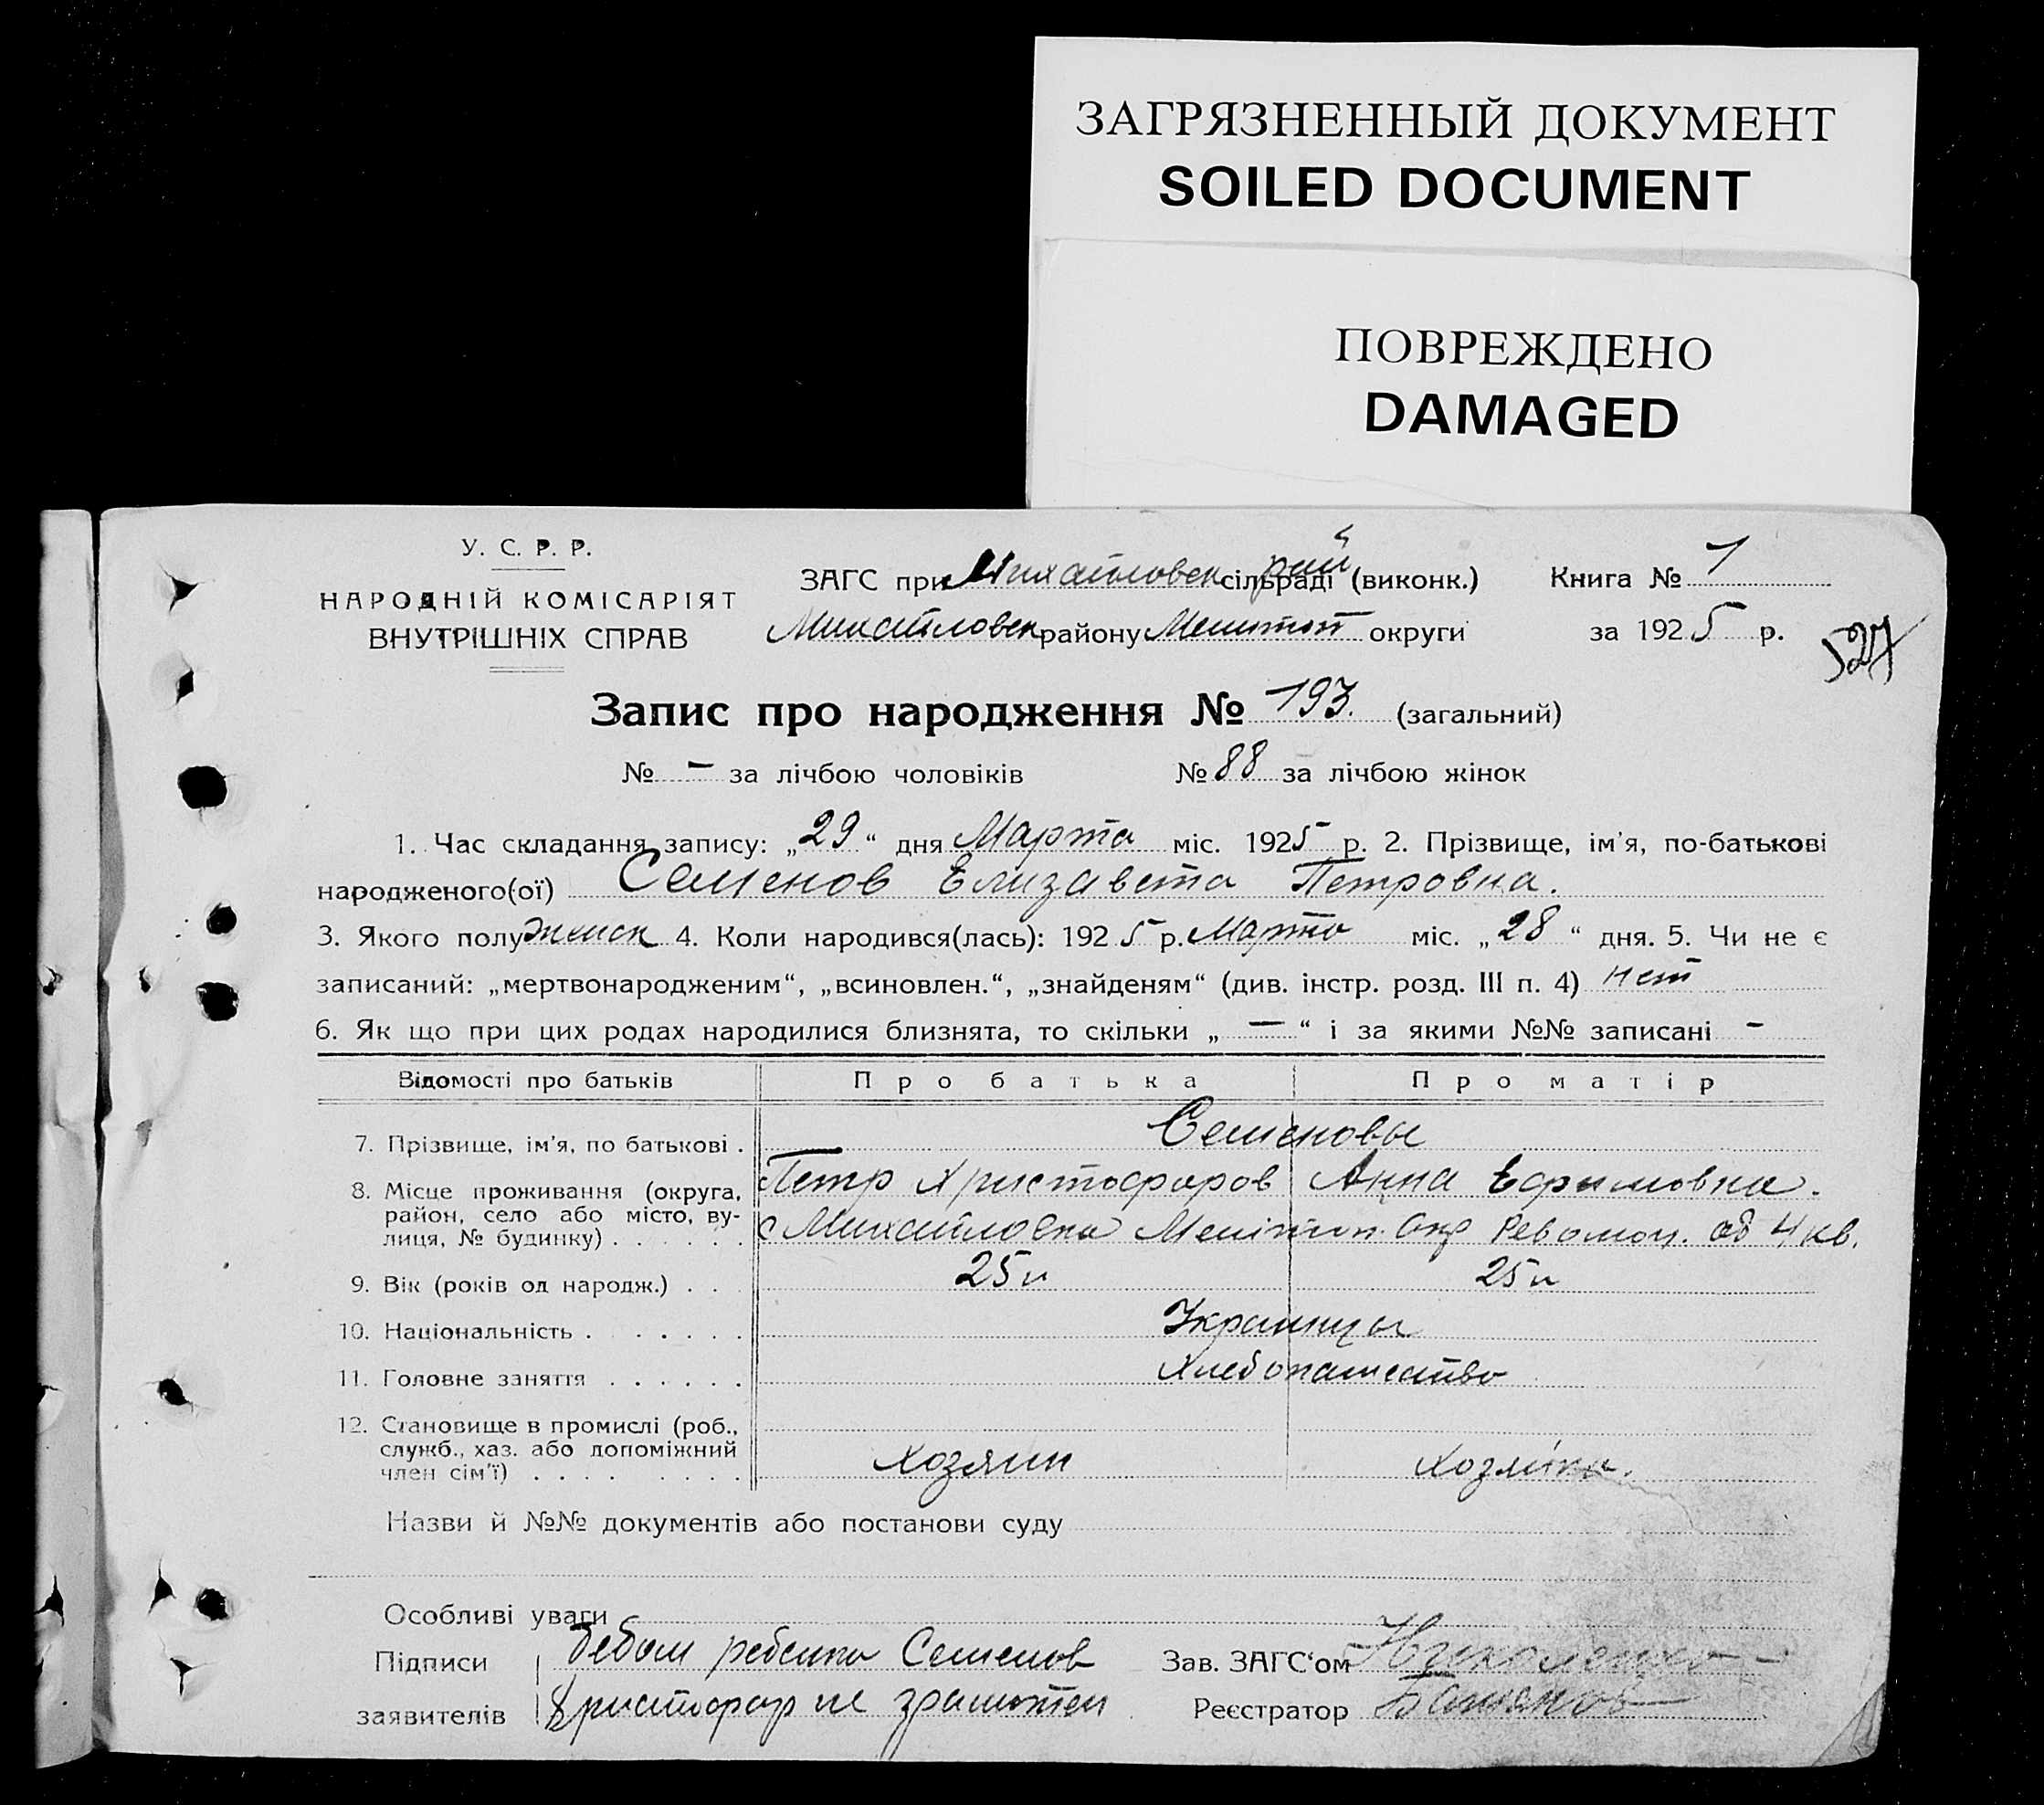 ЗАГРЯЗНЕННЫЙ ДОКУМЕНТ
SOILED DOCUMENT
ПОВРЕЖДЕНО
DAMAGED
У. С. Р. Р.
НАРОДНІЙ КОМІСАРІЯТ
ВНУТРІШНІХ СПРАВ
ЗАГС при Михайловск сільраді рай (виконк.) Книга № 1
Михайловск району Мелитоп округи за 1925 р.
527
Запис про народження № 193. (загальний)
№ — за лічбою чоловіків № 88 за лічбою жінок
1. Час складання запису: „29“ дня Марта міс. 1925 р. 2. Прізвище, ім'я, по-батькові
народженого(ої) Семенов Елизавета Петровна.
3. Якого полу женск 4. Коли народився(лась): 1925 р. Марта міс. „28“ дня. 5. Чи не є
записаний: „мертвонародженим“, „всиновлен.“, „знайденям“ (див. інстр. розд. III п. 4) нет
6. Як що при цих родах народилися близнята, то скільки „—“ і за якими №№ записані -
Відомості про батьків Про батька Про матір
7. Прізвище, ім'я, по батькові . Семеновы
Петр Христофоров Анна Ефимовна.
8. Місце проживання (округа, район, село або місто, ву-
лиця, № будинку) . . . . . . с Михайловка Мелітоп. Окр 4 кв.
9. Вік (років од народж.) . . 25 л 25 л
10. Національність . . . . . . Украинцы
11. Головне заняття . . . . . . Хлебопашество
12. Становище в промислі (роб.,
служб., хаз. або допоміжний
член сім'ї) . . . . . . . . хозяин хозяйка.
Назви й №№ документів або постанови суду
Особливі уваги
Підписи ребенка Семенов Зав. ЗАГС‘ом
заявителів Христофор не грамотен Реєстратор